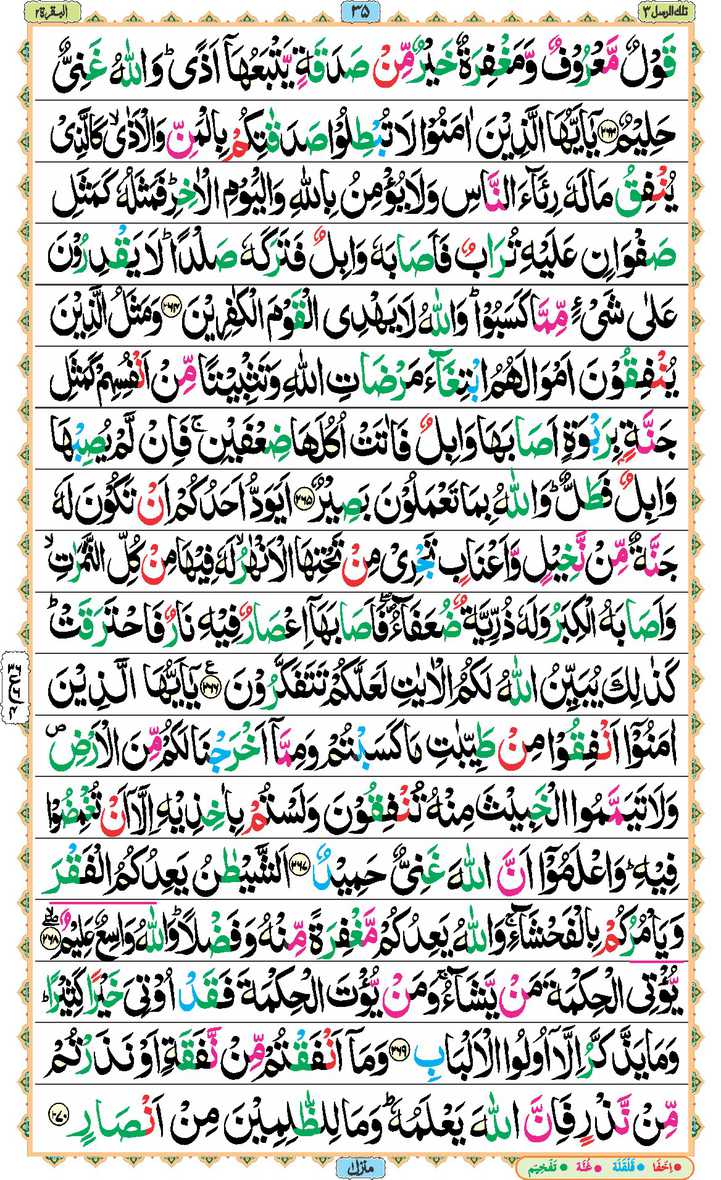 تلك الرسل ٣ ٣٥ البقرة ٢
قَوۡلٌ مَّعۡرُوۡفٌ وَّمَغۡفِرَةٌ خَيۡرٌ مِّنۡ صَدَقَةٍ يَّتۡبَعُهَاۤ اَذًى‌ؕ وَاللّٰهُ غَنِىٌّ
حَلِيۡمٌ‏ ﴿۲۶۳﴾ يٰۤاَيُّهَا الَّذِيۡنَ اٰمَنُوۡا لَا تُبۡطِلُوۡا صَدَقٰتِكُمۡ بِالۡمَنِّ وَالۡاَذٰىۙ كَالَّذِىۡ
يُنۡفِقُ مَالَهٗ رِئَآءَ النَّاسِ وَلَا يُؤۡمِنُ بِاللّٰهِ وَالۡيَوۡمِ الۡاٰخِرِ‌ؕ فَمَثَلُهٗ كَمَثَلِ
صَفۡوَانٍ عَلَيۡهِ تُرَابٌ فَاَصَابَهٗ وَابِلٌ فَتَرَكَهٗ صَلۡدًا ‌ؕ لَا يَقۡدِرُوۡنَ
عَلٰى شَىۡءٍ مِّمَّا كَسَبُوۡا ‌ؕ وَاللّٰهُ لَا يَهۡدِى الۡقَوۡمَ الۡـكٰفِرِيۡنَ‏ ﴿۲۶۴﴾ وَمَثَلُ الَّذِيۡنَ
يُنۡفِقُوۡنَ اَمۡوَالَهُمُ ابۡتِغَآءَ مَرۡضَاتِ اللّٰهِ وَتَثۡبِيۡتًا مِّنۡ اَنۡفُسِهِمۡ كَمَثَلِ
جَنَّةٍۢ بِرَبۡوَةٍ اَصَابَهَا وَابِلٌ فَاٰتَتۡ اُكُلَهَا ضِعۡفَيۡنِ‌ۚ فَاِنۡ لَّمۡ يُصِبۡهَا
وَابِلٌ فَطَلٌّ‌ؕ وَاللّٰهُ بِمَا تَعۡمَلُوۡنَ بَصِيۡرٌ‏ ﴿۲۶۵﴾ اَيَوَدُّ اَحَدُكُمۡ اَنۡ تَكُوۡنَ لَهٗ
جَنَّةٌ مِّنۡ نَّخِيۡلٍ وَّاَعۡنَابٍ تَجۡرِىۡ مِنۡ تَحۡتِهَا الۡاَنۡهٰرُۙ لَهٗ فِيۡهَا مِنۡ كُلِّ الثَّمَرٰتِۙ
وَاَصَابَهُ الۡكِبَرُ وَلَهٗ ذُرِّيَّةٌ ضُعَفَآءُ ‌ۖ فَاَصَابَهَاۤ اِعۡصَارٌ فِيۡهِ نَارٌ فَاحۡتَرَقَتۡ‌ؕ
كَذٰلِكَ يُبَيِّنُ اللّٰهُ لَـكُمُ الۡاٰيٰتِ لَعَلَّكُمۡ تَتَفَكَّرُوۡنَ ﴿۲۶۶﴾ يٰۤاَيُّهَا الَّذِيۡنَ
اٰمَنُوۡاۤ اَنۡفِقُوۡا مِنۡ طَيِّبٰتِ مَا كَسَبۡتُمۡ وَمِمَّاۤ اَخۡرَجۡنَا لَـكُمۡ مِّنَ الۡاَرۡضِ ۖ
وَلَا تَيَمَّمُوا الۡخَبِيۡثَ مِنۡهُ تُنۡفِقُوۡنَ وَلَسۡتُمۡ بِاٰخِذِيۡهِ اِلَّاۤ اَنۡ تُغۡمِضُوۡا
فِيۡهِ‌ؕ وَاعۡلَمُوۡۤا اَنَّ اللّٰهَ غَنِىٌّ حَمِيۡدٌ‏ ﴿۲۶۷﴾ اَلشَّيۡطٰنُ يَعِدُكُمُ الۡـفَقۡرَ
وَيَاۡمُرُكُمۡ بِالۡفَحۡشَآءِ‌ ۚ وَاللّٰهُ يَعِدُكُمۡ مَّغۡفِرَةً مِّنۡهُ وَفَضۡلًا ؕ وَاللّٰهُ وَاسِعٌ عَلِيۡمٌۙ ﴿۲۶۸﴾
يُّؤۡتِى الۡحِكۡمَةَ مَنۡ يَّشَآءُ‌‌ ۚ وَمَنۡ يُّؤۡتَ الۡحِكۡمَةَ فَقَدۡ اُوۡتِىَ خَيۡرًا كَثِيۡرًا‌ ؕ
وَمَا يَذَّكَّرُ اِلَّاۤ اُولُوا الۡاَلۡبَابِ‏ ﴿۲۶۹﴾ وَمَاۤ اَنۡفَقۡتُمۡ مِّنۡ نَّفَقَةٍ اَوۡ نَذَرۡتُمۡ
مِّنۡ نَّذۡرٍ فَاِنَّ اللّٰهَ يَعۡلَمُهٗ ‌ؕ وَمَا لِلظّٰلِمِيۡنَ مِنۡ اَنۡصَارٍ‏ ﴿۲۷۰﴾
منزل ۱
• اِخفَا • قَلقَلَة • غُنَّة • تَفخِيم